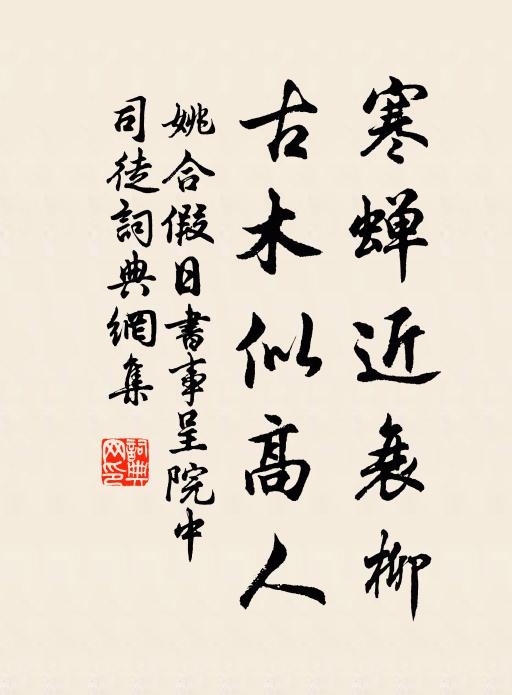 寒蝉近衰柳
古木似高人
姚合假日書事呈院中
司徒詞典網集
詞典
网印